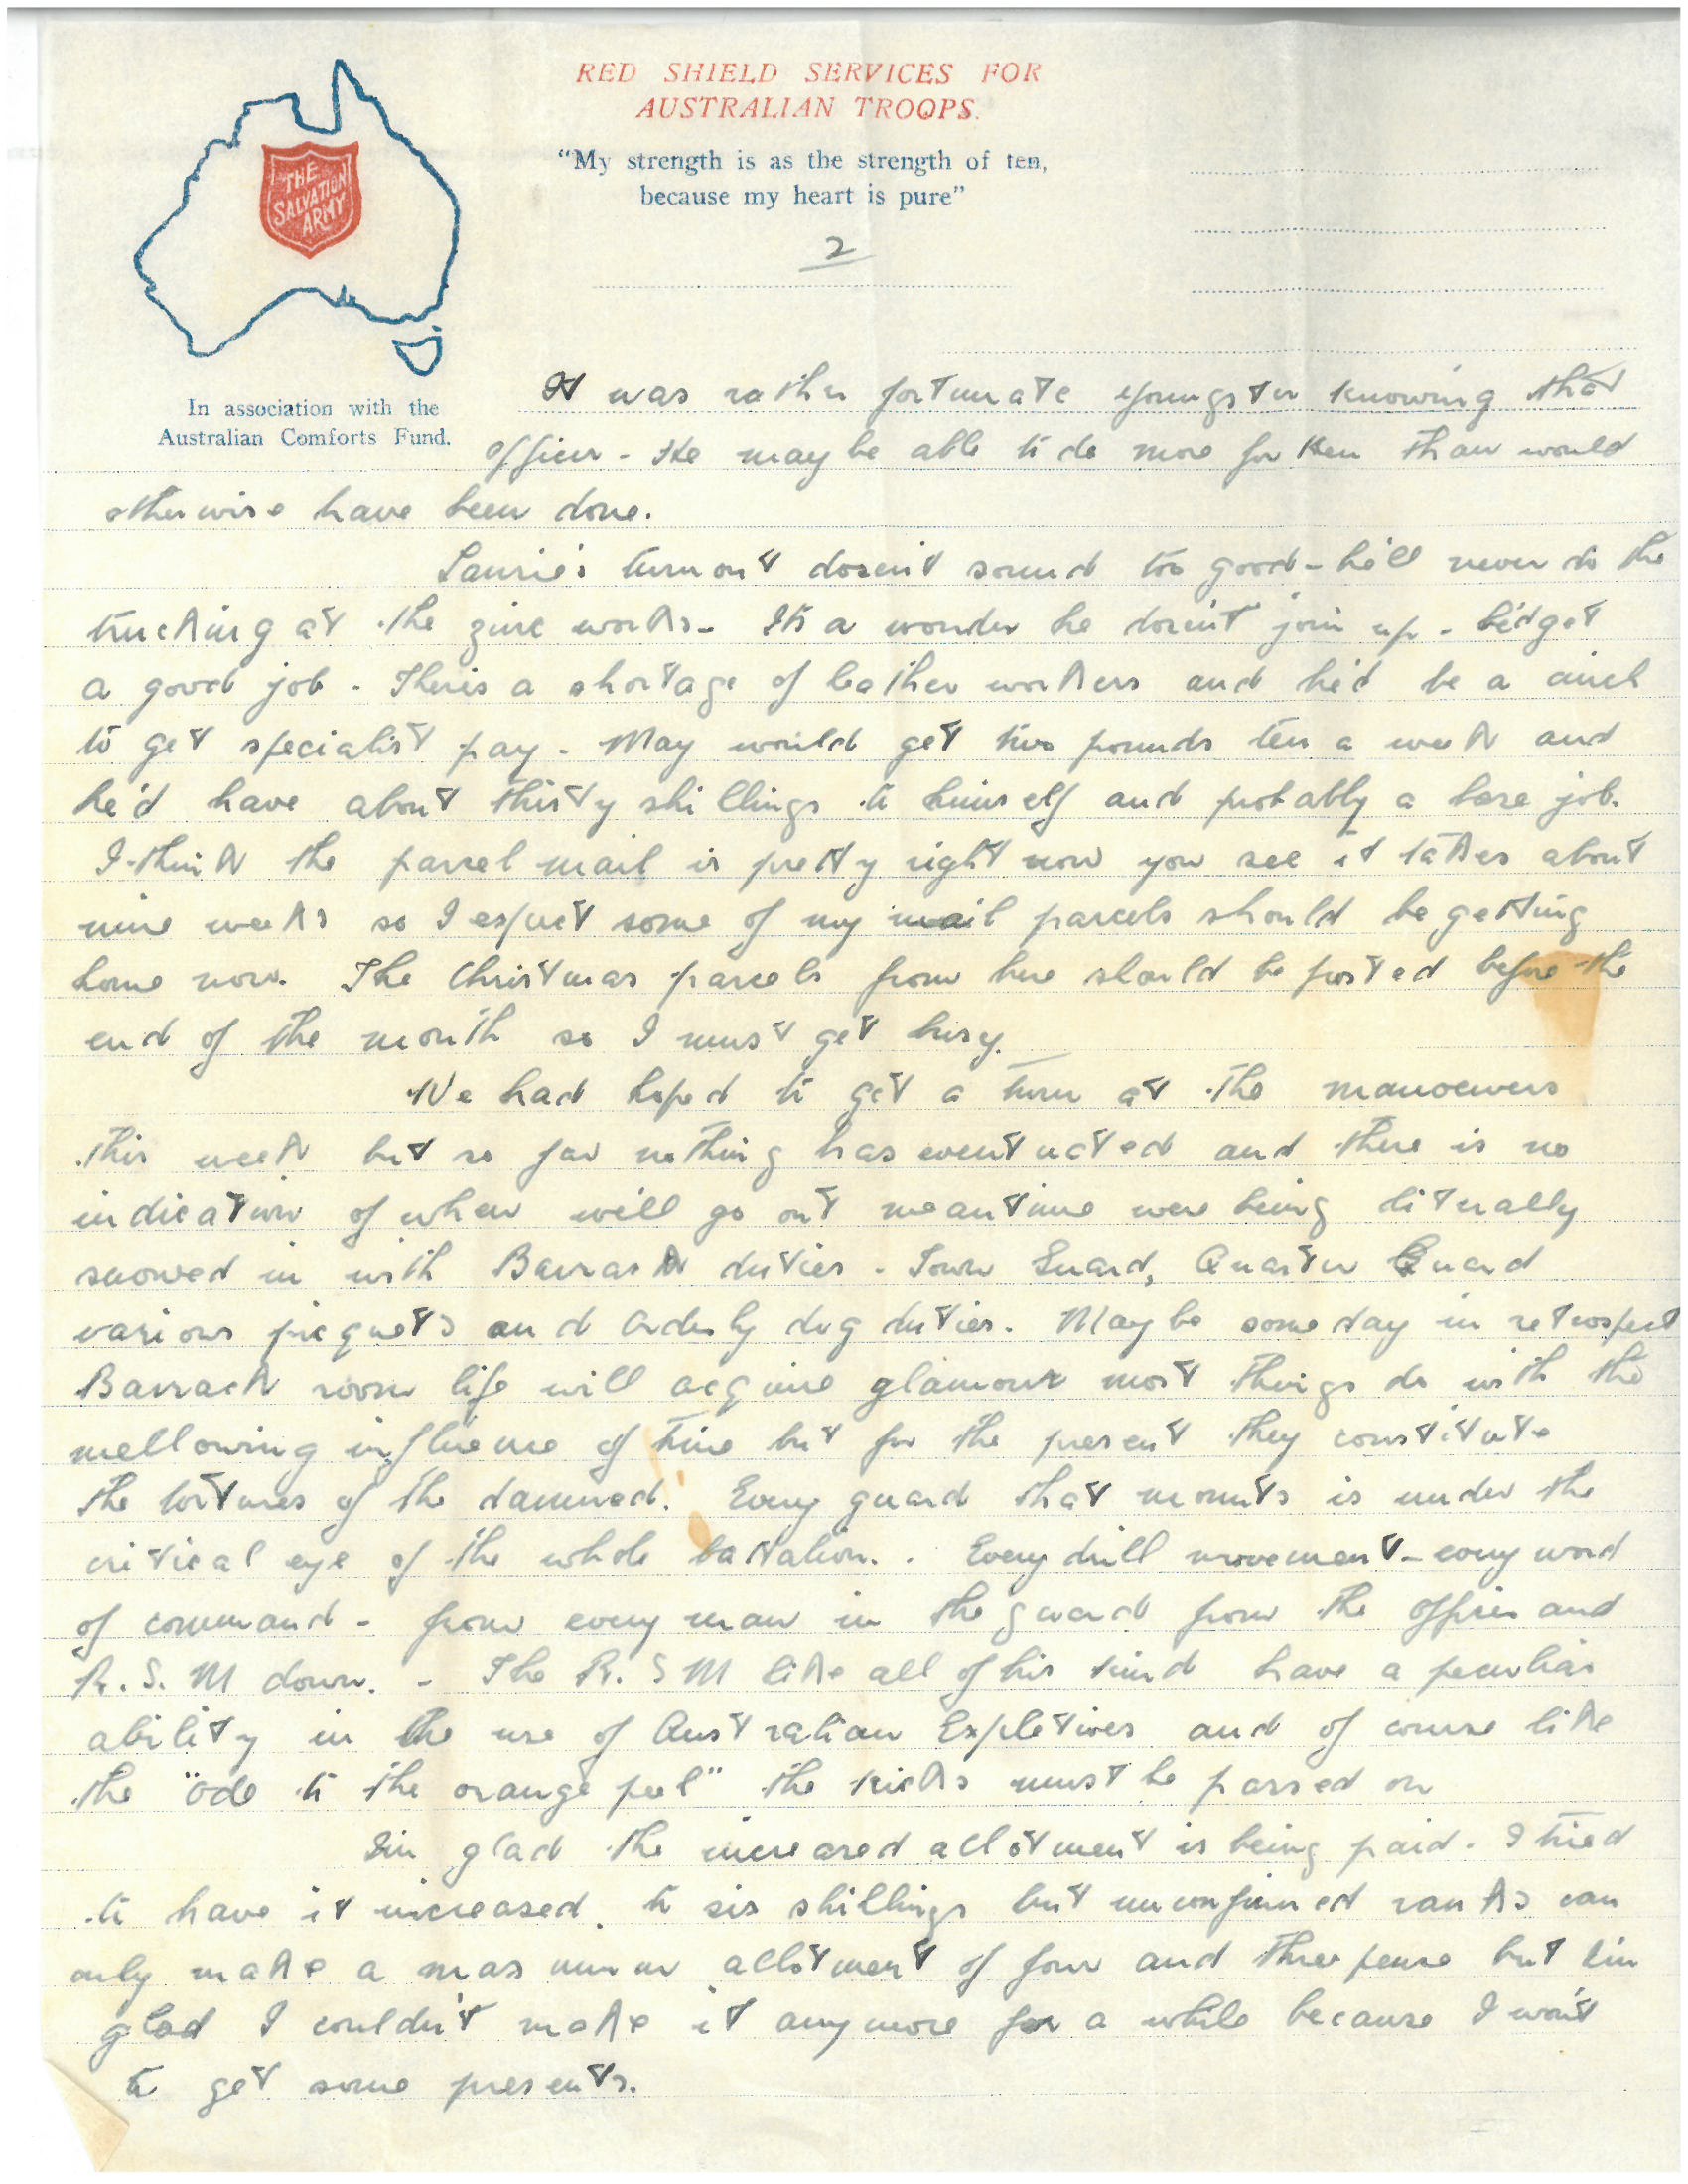 RED SHIELD SERVICES FOR
AUSTRALIAN TROOPS.
"My strength is as the strength of ten,
because my heart is pure"
THE
SALVATION
ARMY
2
In association with the
Australian Comforts Fund.
It was rather fortunate youngster knowing that
officer - He may be able to do more for Ken than would
otherwise have been done.
Laurie's turnout dosen't sound too good - he'll never do the
trucking at the zinc works - Its a wonder he dosen't join up - he'd get
a good job - There's a shortage of leather workers and he'd be a cinch
to get specialist pay - May would get two pounds ten a week and
he'd have about thirty shillings to himself and probably a base job.
I think the parcel mail is pretty right now you see it takes about
nine weeks so I expect some of my mail parcels should be getting
home now. The Christmas parcels from here should be posted before the
end of the month so I must get busy.
We had hoped to get a turn at the manoeuvers
this week but so far nothing has eventuated and there is no
indication of when will go out meantime were being literally
snowed in with Barrack duties - Town Guard, Quarter Guard
various picquets and Orderly dog duties. Maybe some day in retrospect
Barrack room life will acquire glamour most things do with the
mellowing influence of time but for the present they constitute
the tortures of the damned. Every guard that mounts is under the
critical eye of the whole battalion. . Every drill movement - every word
of command - from every man in the guard from the officer and
R.S.M down. - The R.SM like all of his kind have a peculiar
ability in the use of Australian Expletives and of course like
the "ode to the orange peel" the kicks must be passed on
I'm glad the increased allotment is being paid. I tried
to have it increased to six shillings but unconfirmed ranks can
only make a maximum allotment of four and threepence but I'm
glad I couldn't make it anymore for a while because I want
to get some presents.